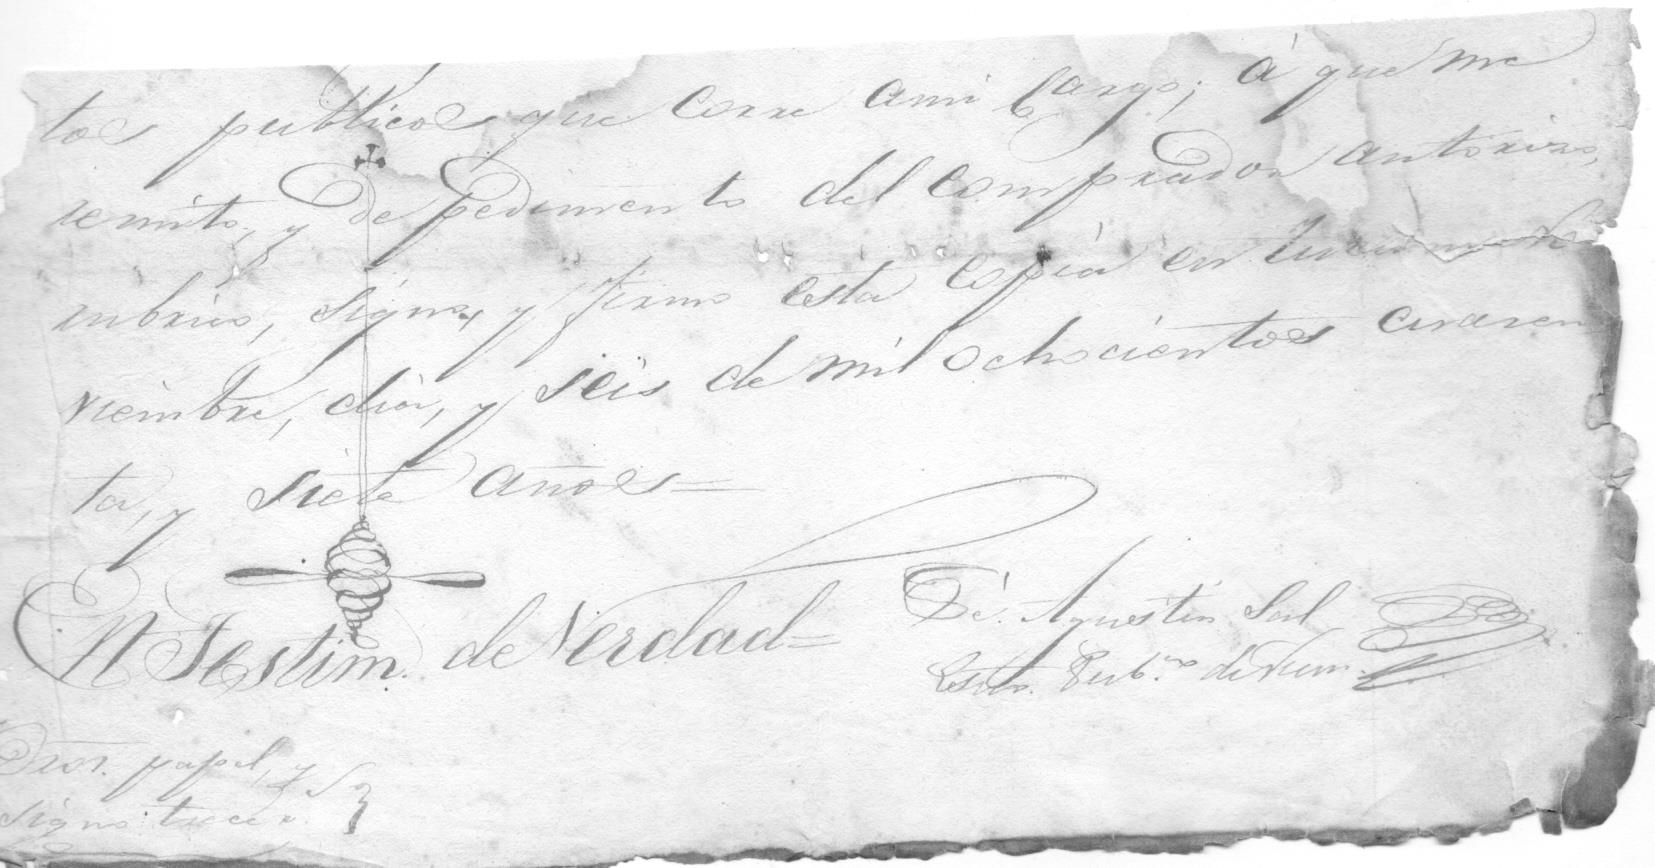 tos publicos que corre ami cargo; á que me
remito, y de pedimento del comprador autorizo,
rubrico, signo, y firmo esta copia en
viembre, dia, y seis de mil ochocientos cuaren
ta, y siete años=
En Testim. de Verdad=
Jé. Agustin Sal
Esno. Pub.co de Num.
Dros. papel, y
signo trece r.